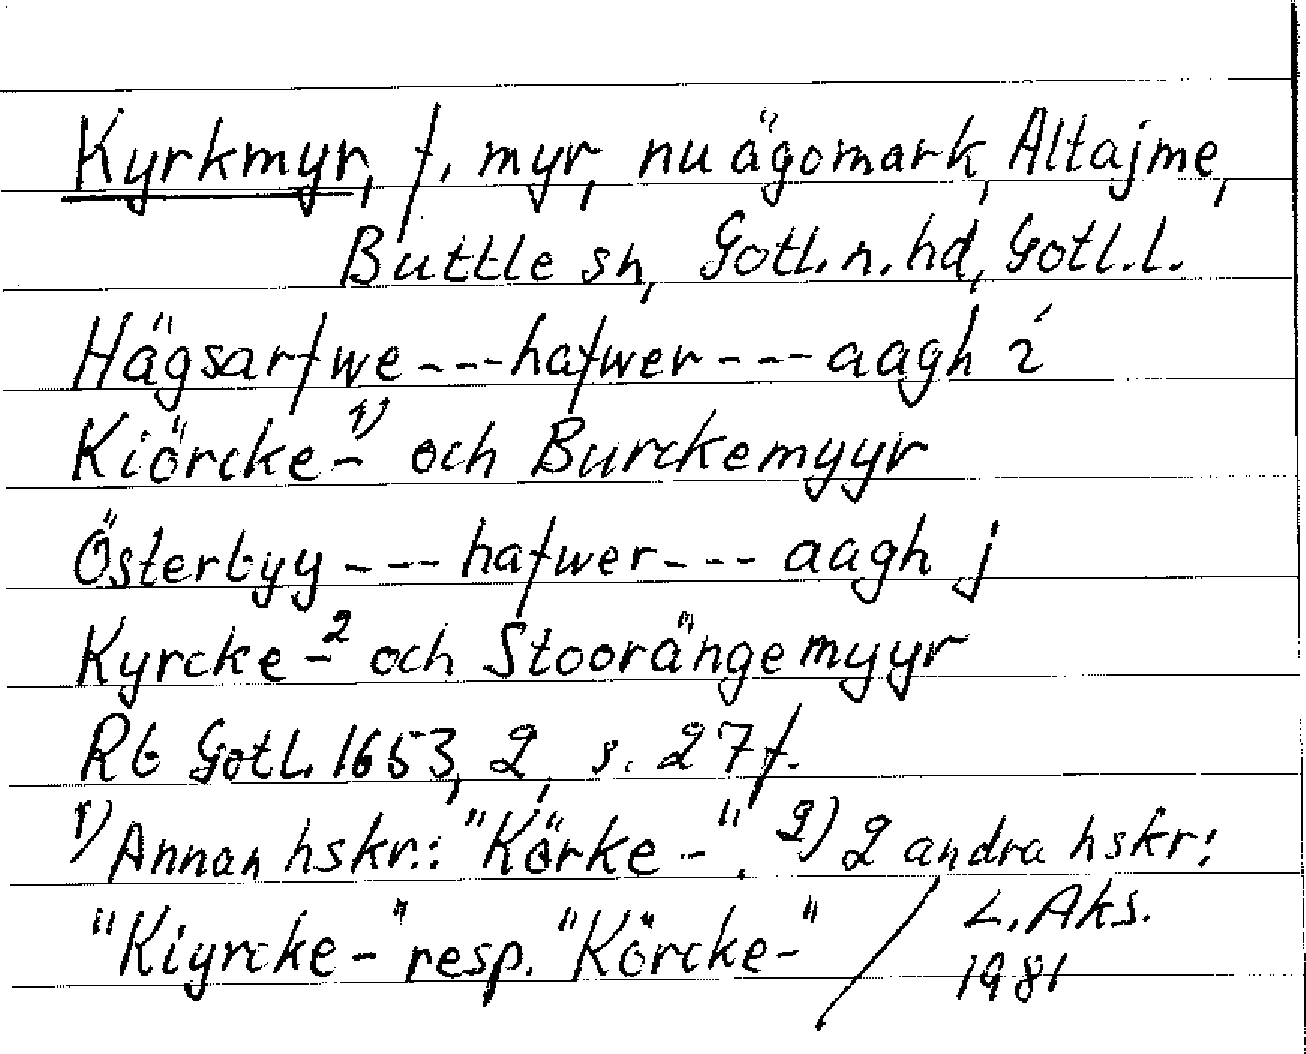 Kyrkmyr, f. myr, nu ägomark, Altajme,
Buttle sn, Gotl. n. hd, Gotl. l.
Hägsarfwe---hafwer---aagh i
Kiörcke-¹⁾ och Burckemyyr
Österbyy---hafwer---aagh j
Kyrcke-² och Stoorängemyyr
Rb Gotl. 1653, 2, s. 27f.
1) Annan hskr.: "Körke-". 2) 2 andra hskr:
"Kiyrcke-" resp. "Körcke-" / L. Aks.
1981